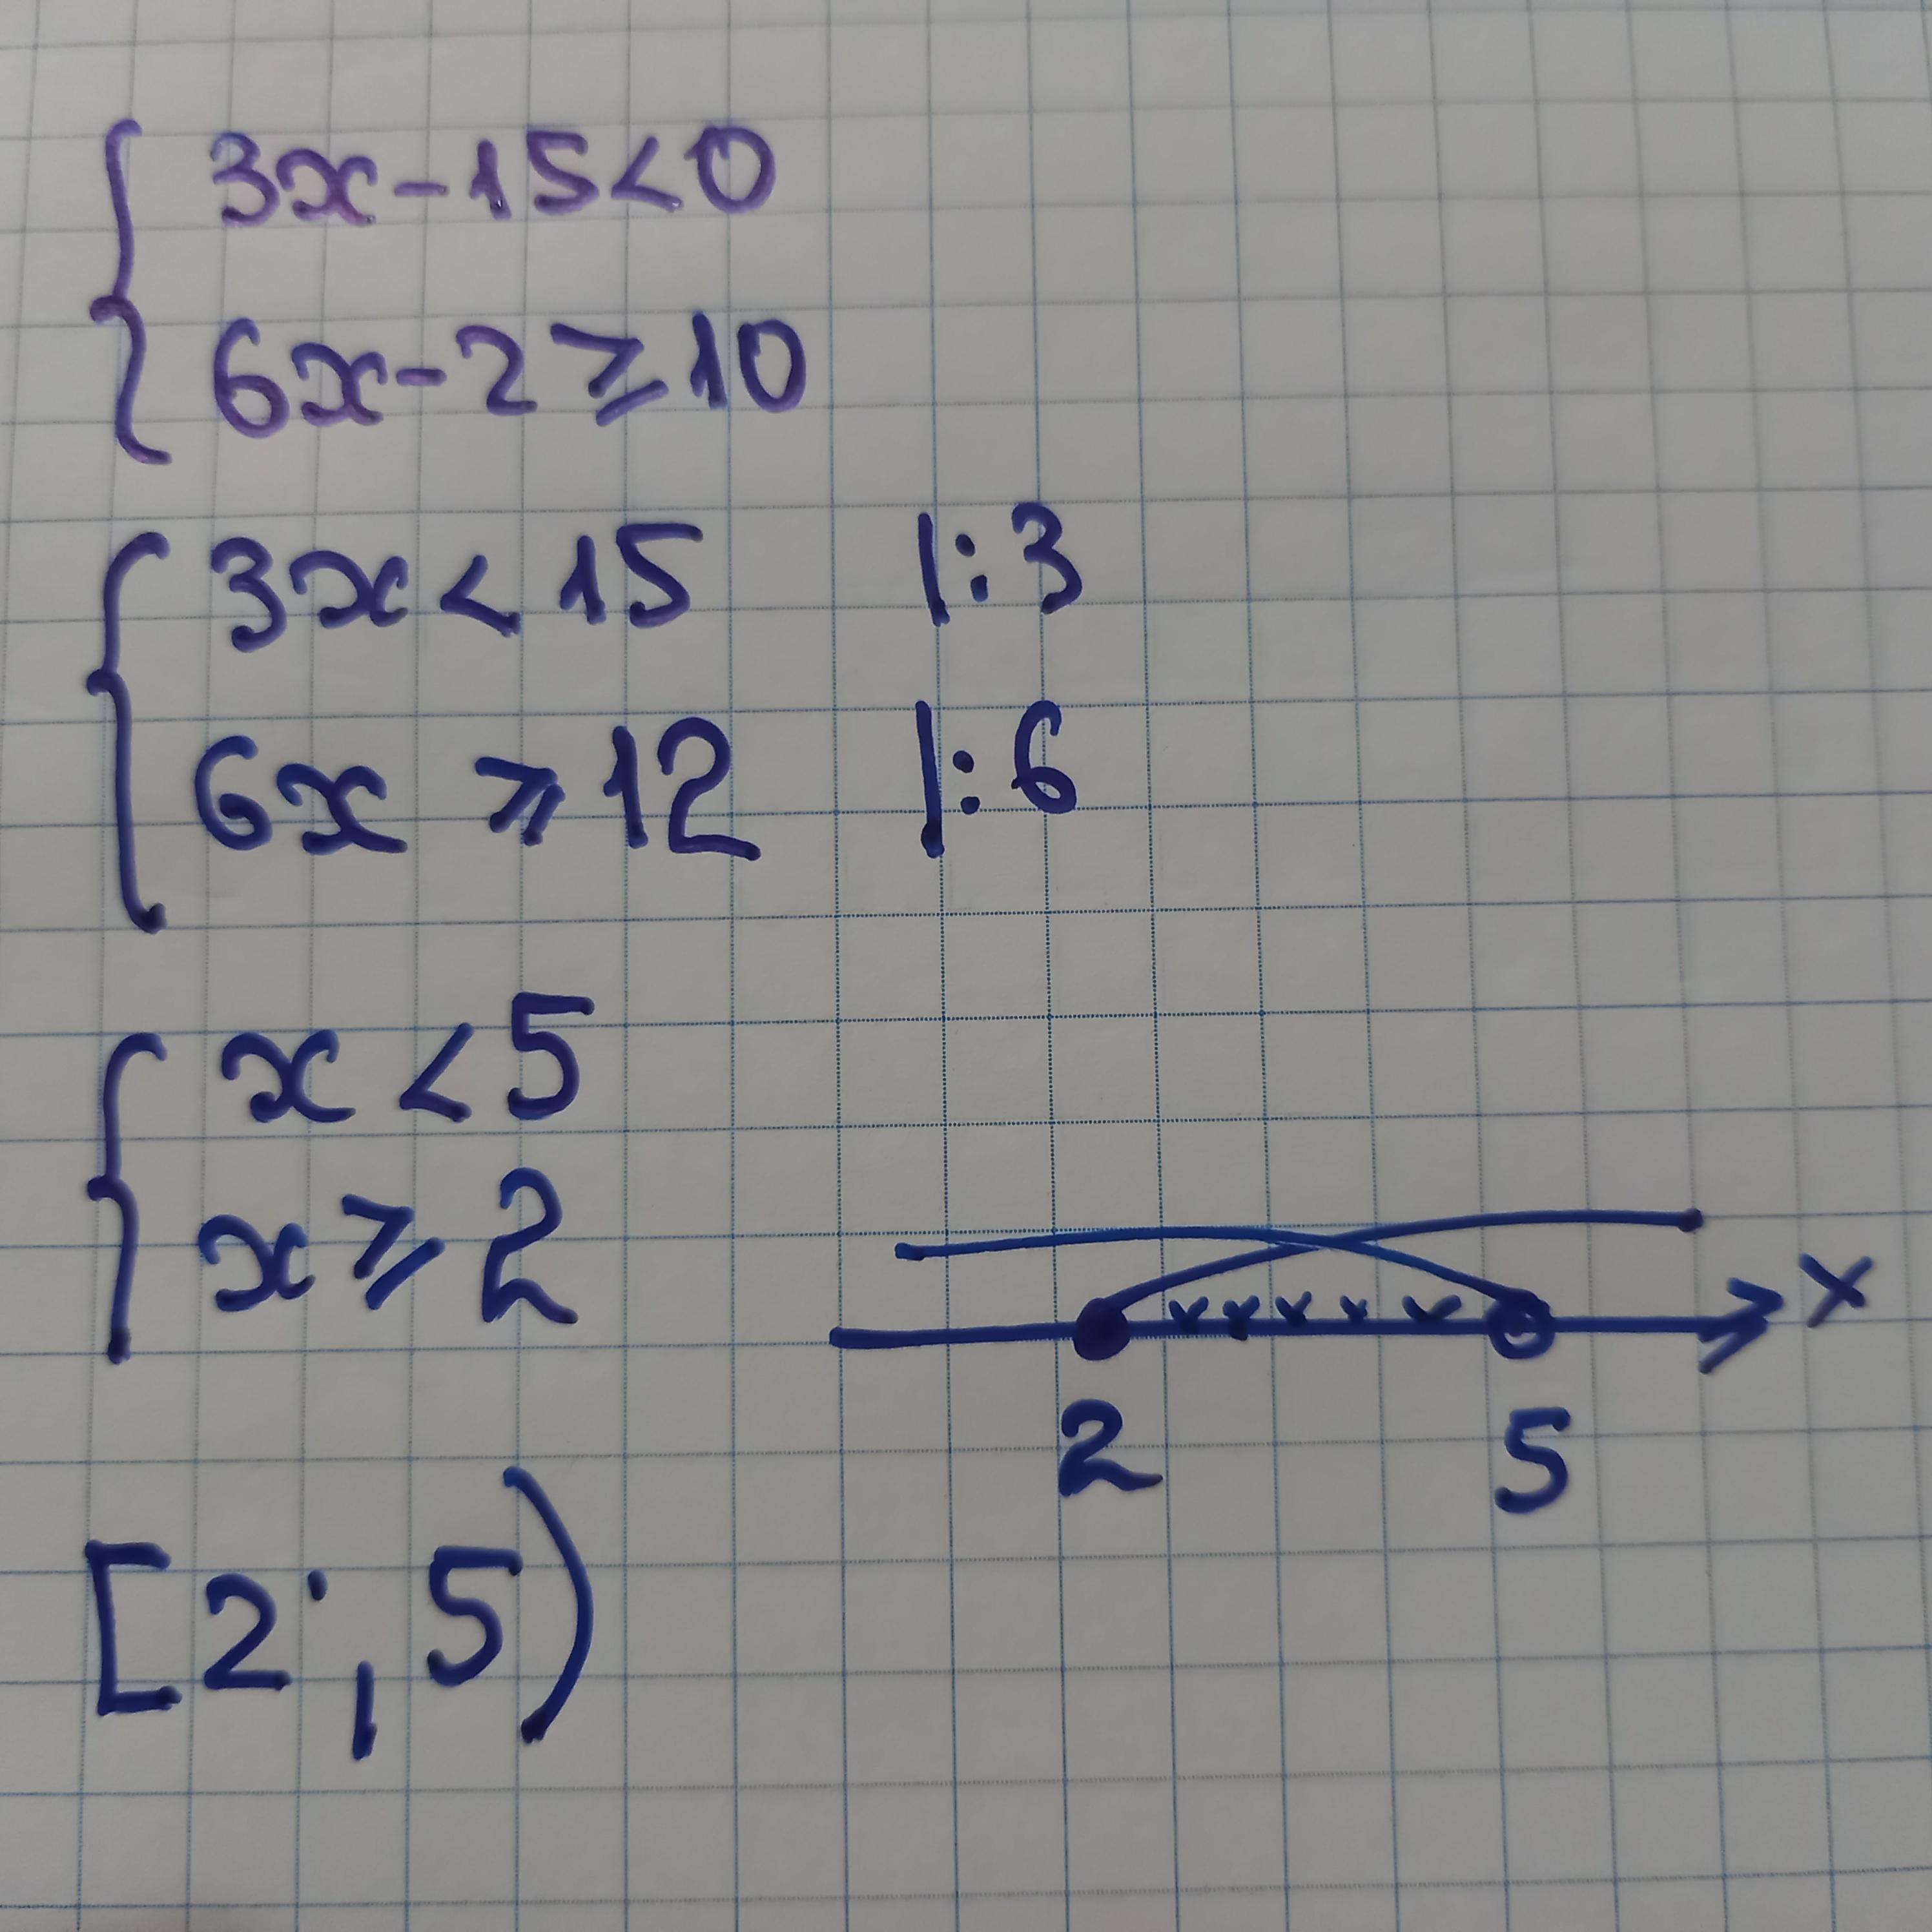 3x-15<0
6x-2≥10
3x<15 |:3
6x⩾12 |:6
x<5
x⩾2
x
2 5
[2;5)